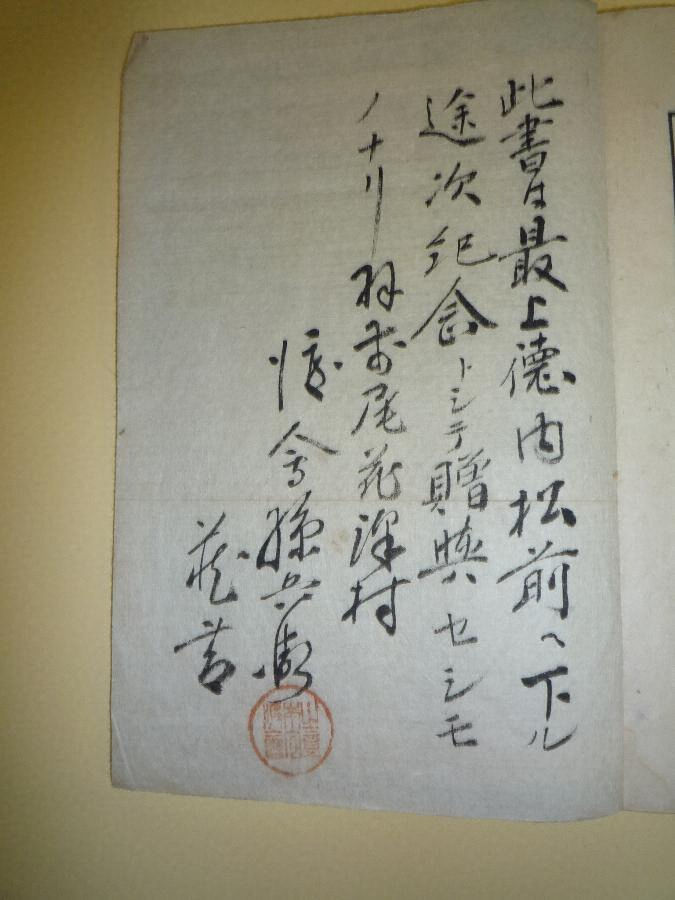 此書ハ最上徳内松前ヘ下ル
途次紀念トシテ贈與セシモ
ノナリ 羽前尾花澤村
孫兵衛
蔵書